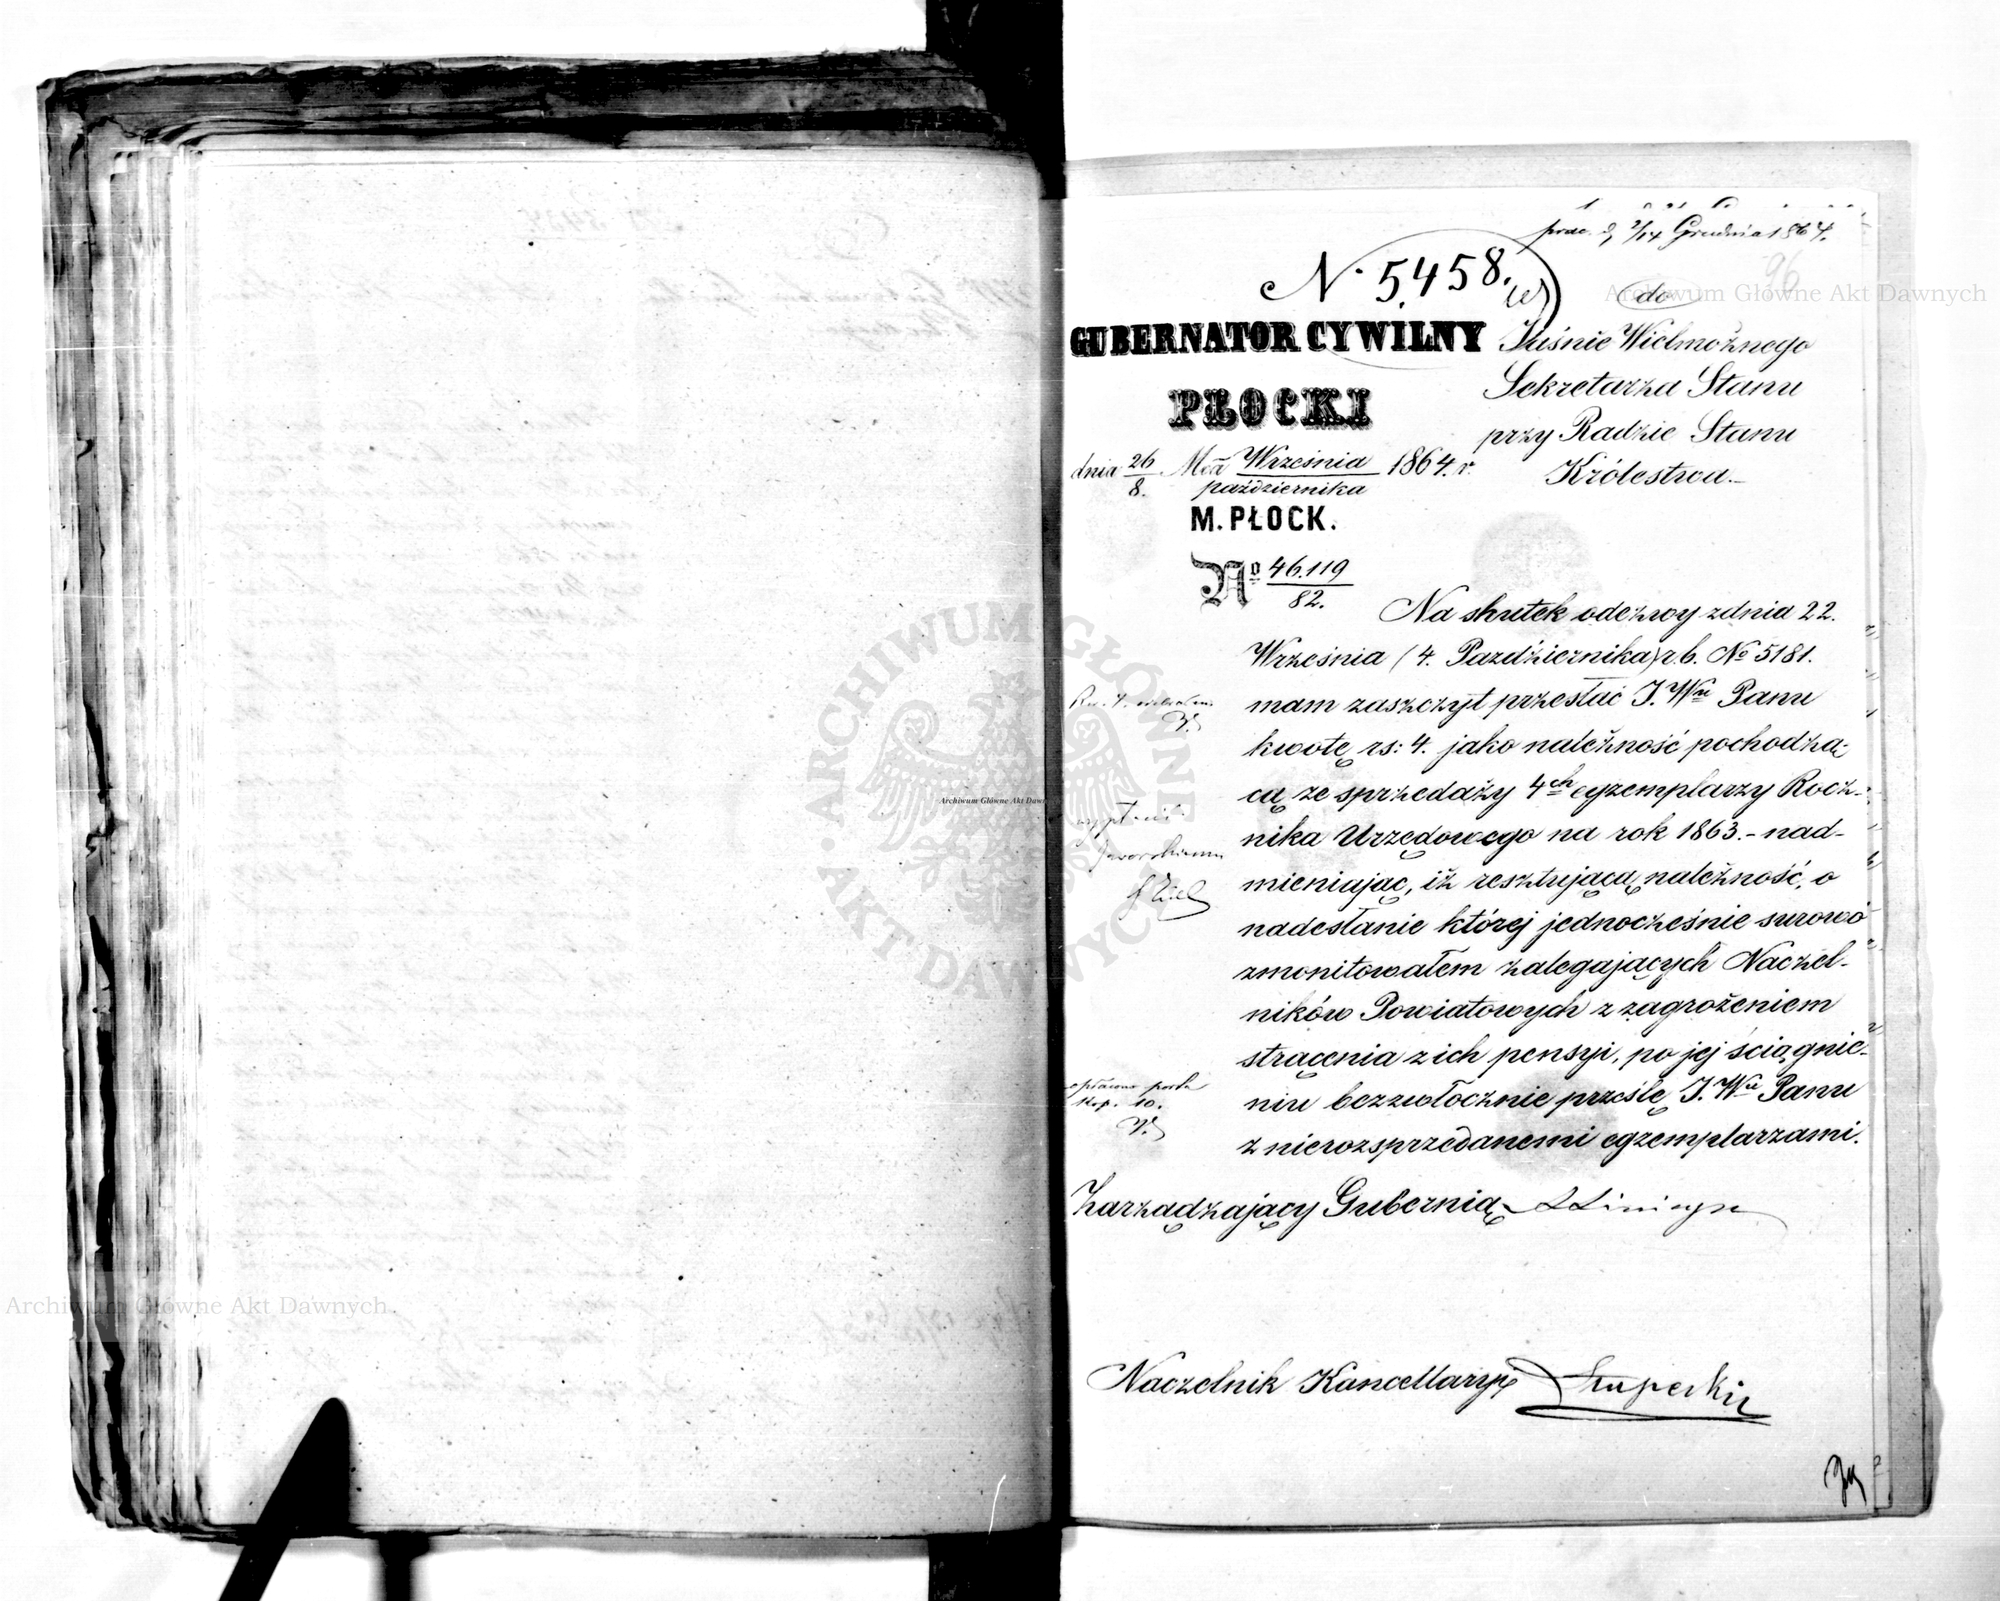 prae. d. 2/14 Grudnia 1864.
96
N. 5,458.
do
GUBERNATOR CYWILNY
PŁOCKI
Jaśnie Wielmożnego
Sekretarza Stanu
przy Radzie Stanu
Królestwa.
dnia 26/8. Mca Września/października 1864 r.
M. PŁOCK.
No 46.119/82.
Na skutek odezwy z dnia 22.
Września (4. Października) r.b. No 5181.
mam zaszczyt przesłać J. Wu Panu
kwotę rs: 4. jako należność pochodzą-
cą ze sprzedaży 4ch egzemplarzy Rocz-
nika Urzędowego na rok 1863. - nad-
mieniając, iż resztującą należność, o
nadesłanie której jednocześnie surowo
zmonitowałem zalegających Naczel-
ników Powiatowych z zagrożeniem
strącenia z ich pensyi, po jej ściągnie-
niu bezzwłocznie prześlę J. Wu Panu
z nierozsprzedanemi egzemplarzami.
Jaworskiemu
kop. 10.
Zarządzający Gubernią
Naczelnik Kancellaryi
Archiwum Główne Akt Dawnych
Archiwum Główne Akt Dawnych
Archiwum Główne Akt Dawnych
ARCHIWUM GŁÓWNE AKT DAWNYCH